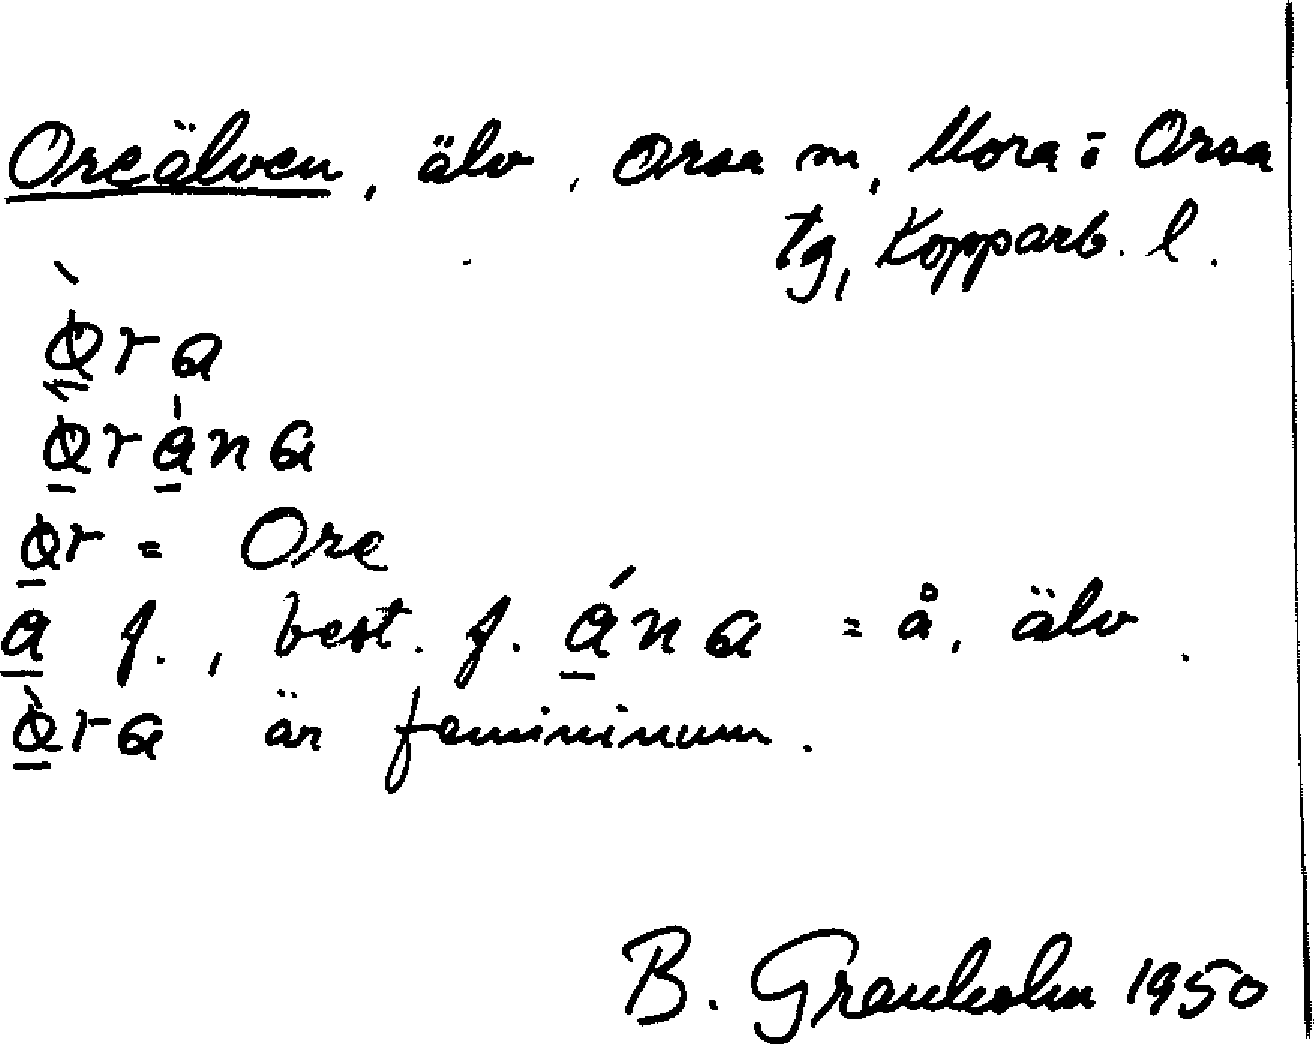 Oreälven, älv, Orsa sn, Mora o Orsa
tg, Kopparb. l.
òra
òrána
òr = Ore
a f., best. f. ána = å, älv.
òra är femininum.
B. Granholm 1950